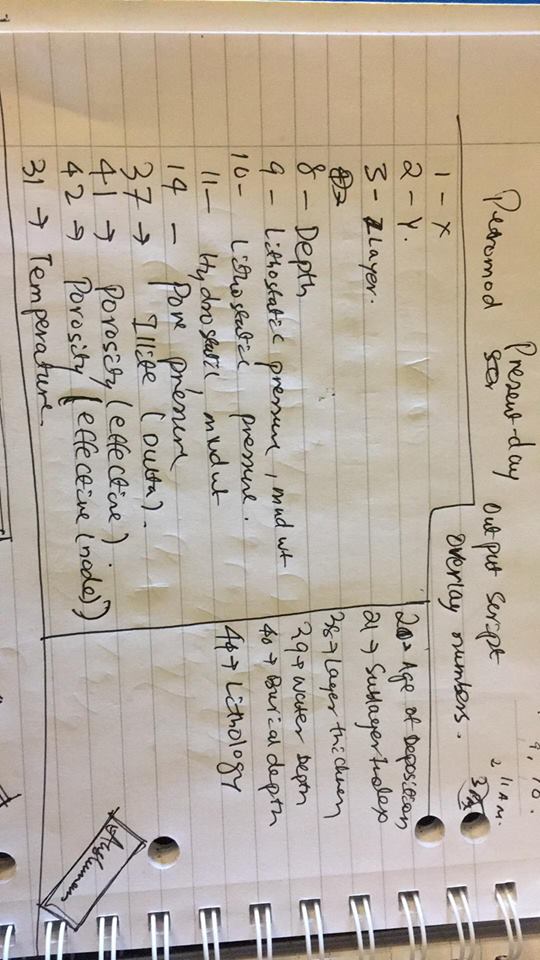 9, 10.
2 11 AM.
Petromod Present-day Output Script
overlay numbers.
1 - X
2 - Y.
3 - Layer.
8 - Depth
9 - Lithostatic pressure, mud wt
10- Lithostatic pressure.
11- Hydrostatic, mud wt
14 - Pore pressure
37 → Illite (Dutta).
41 → Porosity (effective).
42 → Porosity (effective (node))
31 → Temperature.
20 → Age of Deposition
21 → Sublayer Index
38 → Layer thickness
39 → Water Depth
40 → Burial depth
44 → Lithology
Anshuman